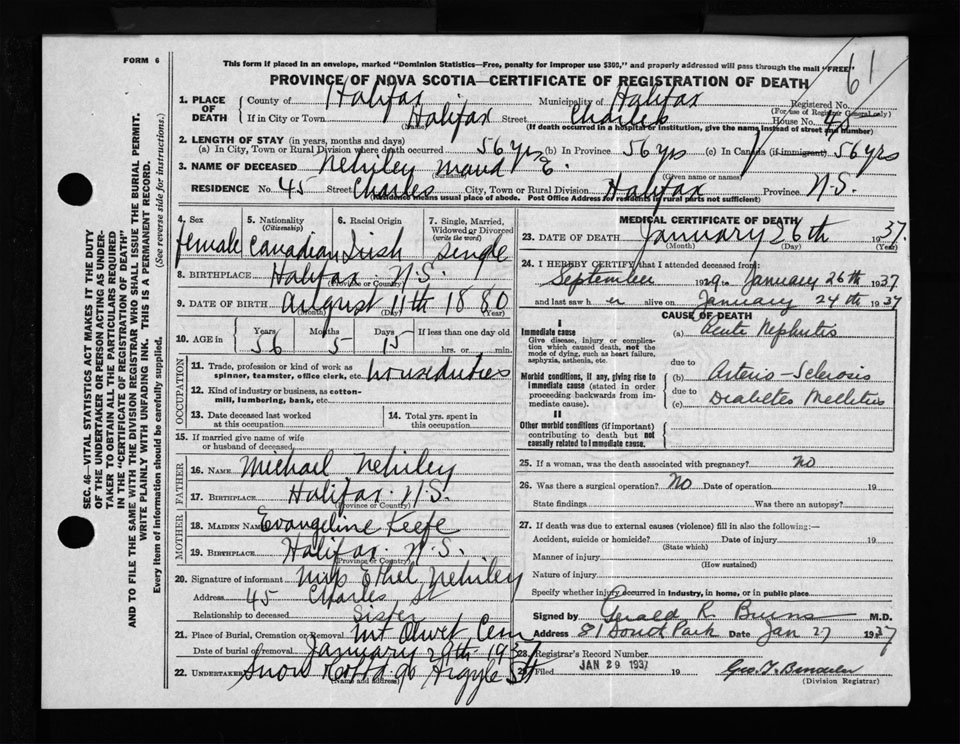 61
FORM 6
This form if placed in an envelope, marked "Dominion Statistics—Free, penalty for improper use $300," and properly addressed will pass through the mail "FREE"
PROVINCE OF NOVA SCOTIA—CERTIFICATE OF REGISTRATION OF DEATH
1. PLACE OF DEATH County of Halifax Municipality of Halifax Registered No.
(For use of Registrar General only)
If in City or Town Halifax Street Charles House No. 45
(Name) (If death occurred in a hospital or institution, give the name instead of street and number)
2. LENGTH OF STAY (in years, months and days)
(a) In City, Town or Rural Division where death occurred 56 yrs (b) In Province 56 yrs (c) In Canada (if immigrant) 56 yrs
3. NAME OF DECEASED Nehiley Maud E.
(Surname) (Given name or names)
RESIDENCE No. 45 Street Charles City, Town or Rural Division Halifax Province N.S.
(Residence means usual place of abode. Post Office Address for residents in rural parts not sufficient)
4. Sex female
5. Nationality (Citizenship) Canadian
6. Racial Origin Irish
7. Single, Married, Widowed or Divorced (write the word) Single
8. BIRTHPLACE Halifax N.S.
(Province or Country)
9. DATE OF BIRTH August 11th 1880
(Month) (Day) (Year)
10. AGE Years 56 Months 5 Days 15 If less than one day old
hrs. or min.
OCCUPATION
11. Trade, profession or kind of work as spinner, teamster, office clerk, etc. houseduties
12. Kind of industry or business, as cotton-mill, lumbering, bank, etc.
13. Date deceased last worked at this occupation
14. Total yrs. spent in this occupation
15. If married give name of wife or husband of deceased
FATHER
16. NAME Michael Nehiley
17. BIRTHPLACE Halifax N.S.
(Province or Country)
MOTHER
18. MAIDEN NAME Evangeline Keefe
19. BIRTHPLACE Halifax N.S.
(Province or Country)
20. Signature of informant Miss Ethel Nehiley
Address 45 Charles St
Relationship to deceased Sister
21. Place of Burial, Cremation or Removal Mt Olivet Cem
Date of burial or removal January 29th 1937
22. UNDERTAKER Snow & Co Ltd 90 Argyle St
(Name and address)
MEDICAL CERTIFICATE OF DEATH
23. DATE OF DEATH January 26th 1937
(Month) (Day) (Year)
24. I HEREBY CERTIFY that I attended deceased from:
September 1929 to January 26th 1937
and last saw her alive on January 24th 1937
CAUSE OF DEATH
I
Immediate cause (a) Acute Nephritis
Give disease, injury or complication which caused death, not the mode of dying, such as heart failure, asphyxia, asthenia, etc.
due to
Morbid conditions, if any, giving rise to immediate cause (stated in order proceeding backwards from immediate cause).
(b) Arterio-Sclerosis
due to
(c) Diabetes Mellitus
II
Other morbid conditions (if important) contributing to death but not causally related to immediate cause.
25. If a woman, was the death associated with pregnancy? no
26. Was there a surgical operation? No Date of operation 19
State findings Was there an autopsy?
27. If death was due to external causes (violence) fill in also the following:—
Accident, suicide or homicide? Date of injury 19
(State which)
Manner of injury
(How sustained)
Nature of injury
Specify whether injury occurred in industry, in home, or in public place
Signed by Gerald R. Burns M.D.
Address 81 South Park Date Jan 27 1937
28. Registrar's Record Number
29. Filed JAN 29 1937 19
(Division Registrar)
SEC. 46—VITAL STATISTICS ACT MAKES IT THE DUTY
OF THE UNDERTAKER OR PERSON ACTING AS UNDER-
TAKER TO OBTAIN ALL THE PARTICULARS REQUIRED
IN THE "CERTIFICATE OF REGISTRATION OF DEATH"
AND TO FILE THE SAME WITH THE DIVISION REGISTRAR WHO SHALL ISSUE THE BURIAL PERMIT.
WRITE PLAINLY WITH UNFADING INK. THIS IS A PERMANENT RECORD.
Every item of information should be carefully supplied. (See reverse side for instructions.)